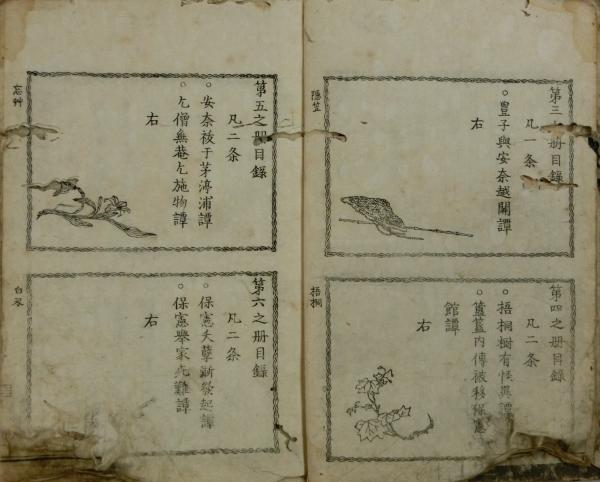 第三之册目録
凡一条
○豊子與安奈越關譚
右
隠笠
第四之册目録
凡二条
○梧桐樹有怪異譚
○簠簋内傳被移保憲
館譚
右
梧桐
第五之册目録
凡二条
○安奈祓于茅渟浦譚
○乞僧無菴乞施物譚
右
忘艸
第六之册目録
凡二条
○保憲夭孽漸發起譚
○保憲擧家免難譚
右